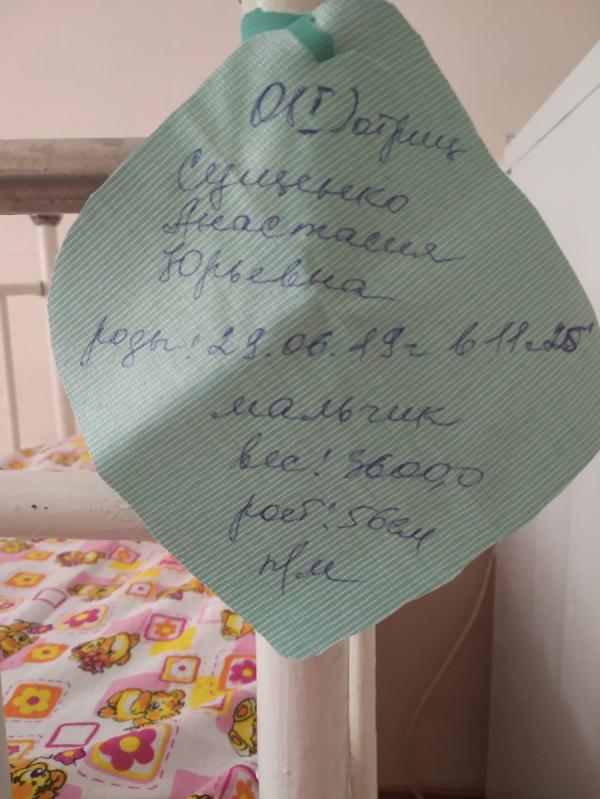 O(I) отриц
Сущенко
Анастасия
Юрьевна
роды: 29.06.19г в 11.25'
мальчик
вес: 3600,0
рост: 56см